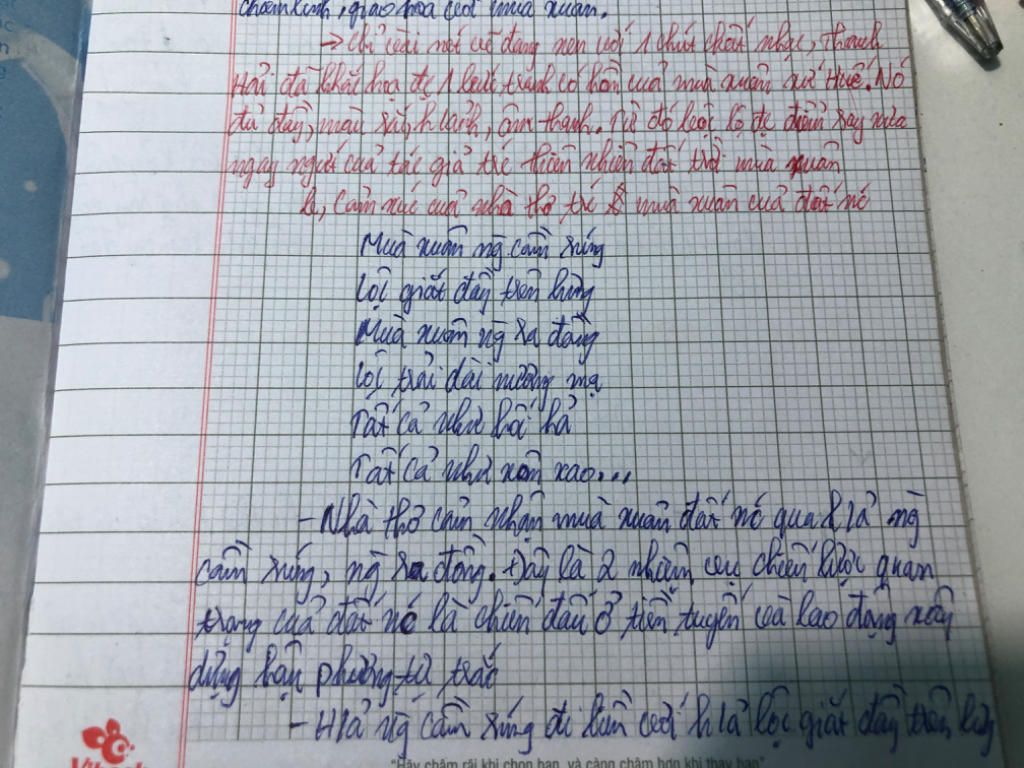 chồm xinh, giao hòa với mùa xuân.
→ Chỉ vài nét vẽ đang xen với 1 chút chất nhạc, Thanh
Hải đã khắc họa đc 1 bức tranh có hồn của mùa xuân xứ Huế. Nó
đủ đầy, màu sắc, h/ảnh, âm thanh. Từ đó bộc lộ đc điểm say xưa
ngay người của tác giả trc thiên nhiên đất trời mùa xuân
b, Cảm xúc của nhà thơ trc mùa xuân của đất nc
Mùa xuân ng cầm súng
Lộc giắt đầy trên lưng
Mùa xuân ng ra đồng
Lộc trải dài nương mạ
Tất cả như hối hả
Tất cả như xôn xao...
- Nhà thơ cảm nhận mùa xuân đất nc qua h/ả ng
cầm súng, ng ra đồng. Đây là 2 nhiệm vụ chiến lược quan
trọng của đất nc là chiến đấu ở tiền tuyến và lao động xây
dựng hậu phương từ trc
- H/ả ng cầm súng đi liền với h/ả lộc giắt đầy trên lưng
"Hãy chậm rãi khi chọn bạn, và càng chậm hơn khi thay bạn"